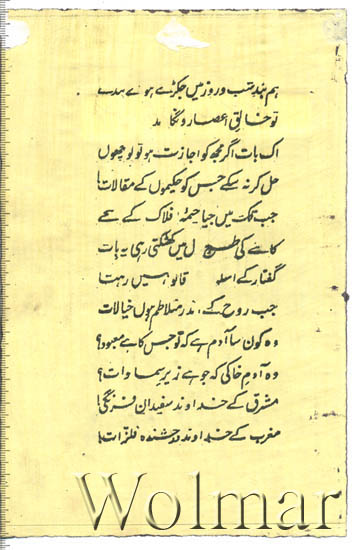 ہم بندِ شب و روز میں جکڑے ہوے بندے
تو خالقِ اعصار و نگا
اک بات اگر مجھ کو اجازت ہو تو پوچھوں
حل کر نہ سکے جس کو حکیموں کے مقالات!
جب تک میں جیا خیمۂ فلاک کے نیچے
کانٹے کی طرح دل میں کھٹکتی رہی یہ بات
گفتار کے اسلو قابو نہیں رہتا
جب روح کے اندر متلاطم ہوں خیالات
وہ کون سا آدم ہے کہ تو جس کا ہے معبود؟
وہ آدمِ خاکی کہ جو ہے زیرِ سماوات؟
مشرق کے خداوند سفیدانِ فرنگی!
مغرب کے خداوند درخشندہ فلزات!
Wolmar